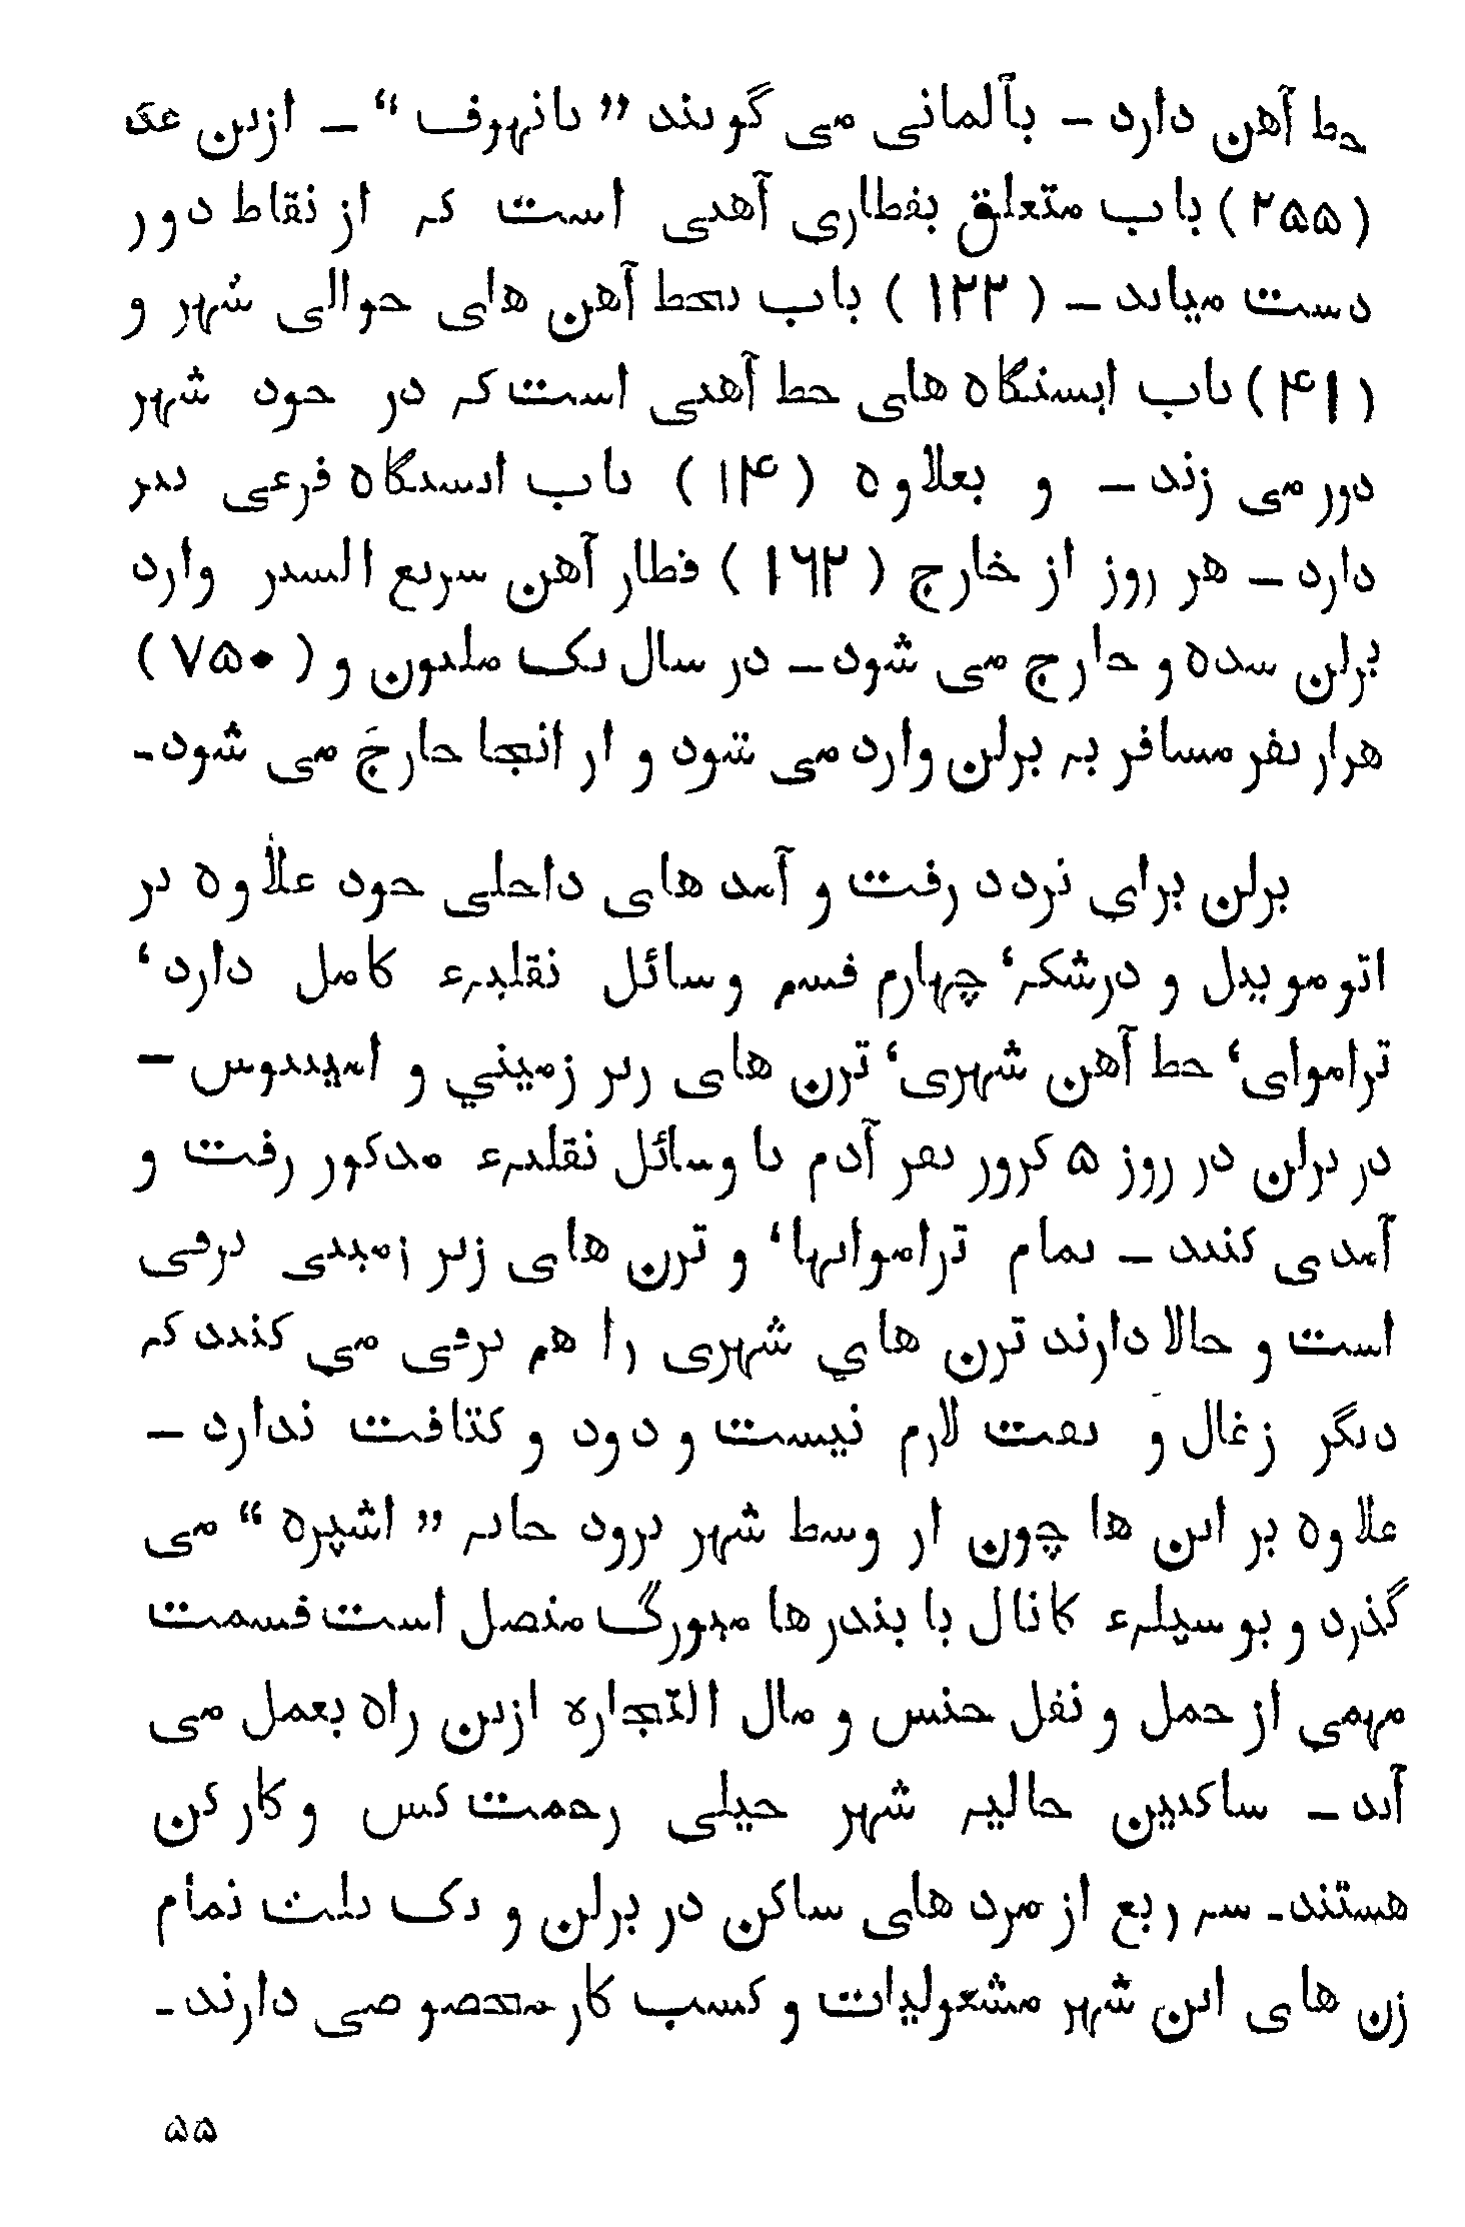 خط آهن دارد ـ بآلمانی می گویند ” بانهوف “ ـ ازین عده
(۲۵۵) باب متعلق بقطاری آهنی است که از نقاط دور
دست میاید ـ (۱۲۲) باب بخط آهن های حوالی شهر و
(۴۱) باب ایستگاه های خط آهنی است که در خود شهر
دور می زند ـ و بعلاوه (۱۴) باب ایستگاه فرعی نیز
دارد ـ هر روز از خارج (۱۶۲) قطار آهن سریع السیر وارد
برلن شده و خارج می شود ـ در سال یک ملیون و (۷۵۰)
هزار نفر مسافر به برلن وارد می شود و از انجا خارج می شود ـ
برلن برای تردد رفت و آمد های داخلی خود علاوه بر
اتوموبیل و درشکه‘ چهارم قسم وسائل نقلیهء کامل دارد‘
تراموای‘ خط آهن شهری‘ ترن های زیر زمینی و امیبوس ـ
در برلن در روز ۵ کرور نفر آدم با وسائل نقلیهء مذکور رفت و
آمدی کنند ـ تمام تراموایها‘ و ترن های زیر زمینی برقی
است و حالا دارند ترن های شهری را هم برقی می کنند که
دیگر زغال و نفت لازم نیست و دود و کثافت ندارد ـ
علاوه بر این ها چون از وسط شهر برود خانه ” اشپره “ می
گذرد و بوسیلهء کانال با بندر هامبورگ متصل است قسمت
مهمی از حمل و نقل جنس و مال التجاره ازین راه بعمل می
آید ـ ساکنین حالیه شهر خیلی زحمت کش و کار کن
هستند ـ سه ربع از مرد های ساکن در برلن و یک ثلث تمام
زن های این شهر مشغولیات و کسب کار مخصوصی دارند ـ
۵۵